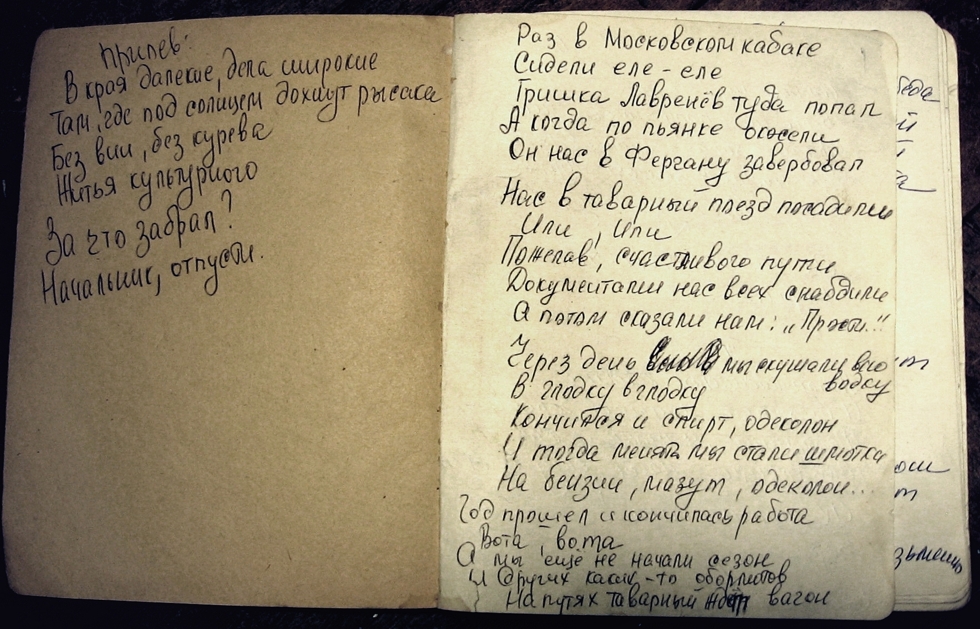 Припев:
В края далекие, дела широкие
Там, где под солнцем дохнут рысака
Без вин, без курева
Житья культурного
За что забрал?
Начальник, отпусти.
Раз в Московском кабаке
Сидели еле-еле
Гришка Лавренёв туда попал
А когда по пьянке окосели
Он нас в Фергану завербовал
Нас в таварный поезд посадили
Или, или
Пожелав, счастливого пути
Документами нас всех снабдили
А потом сказали нам: „Прости..."
Через день мы скушали всю
водку
В глодку в глодку
Кончился и спирт, одеколон
И тогда менять мы стали шмотки
На бензин, мазут, одеколон...
Год прошел и кончилась работа
Вота, вота
А мы ещё не начали сезон
И других каких-то обормотов
На путях таварный ждёт вагон
беда
й
т
ом
т